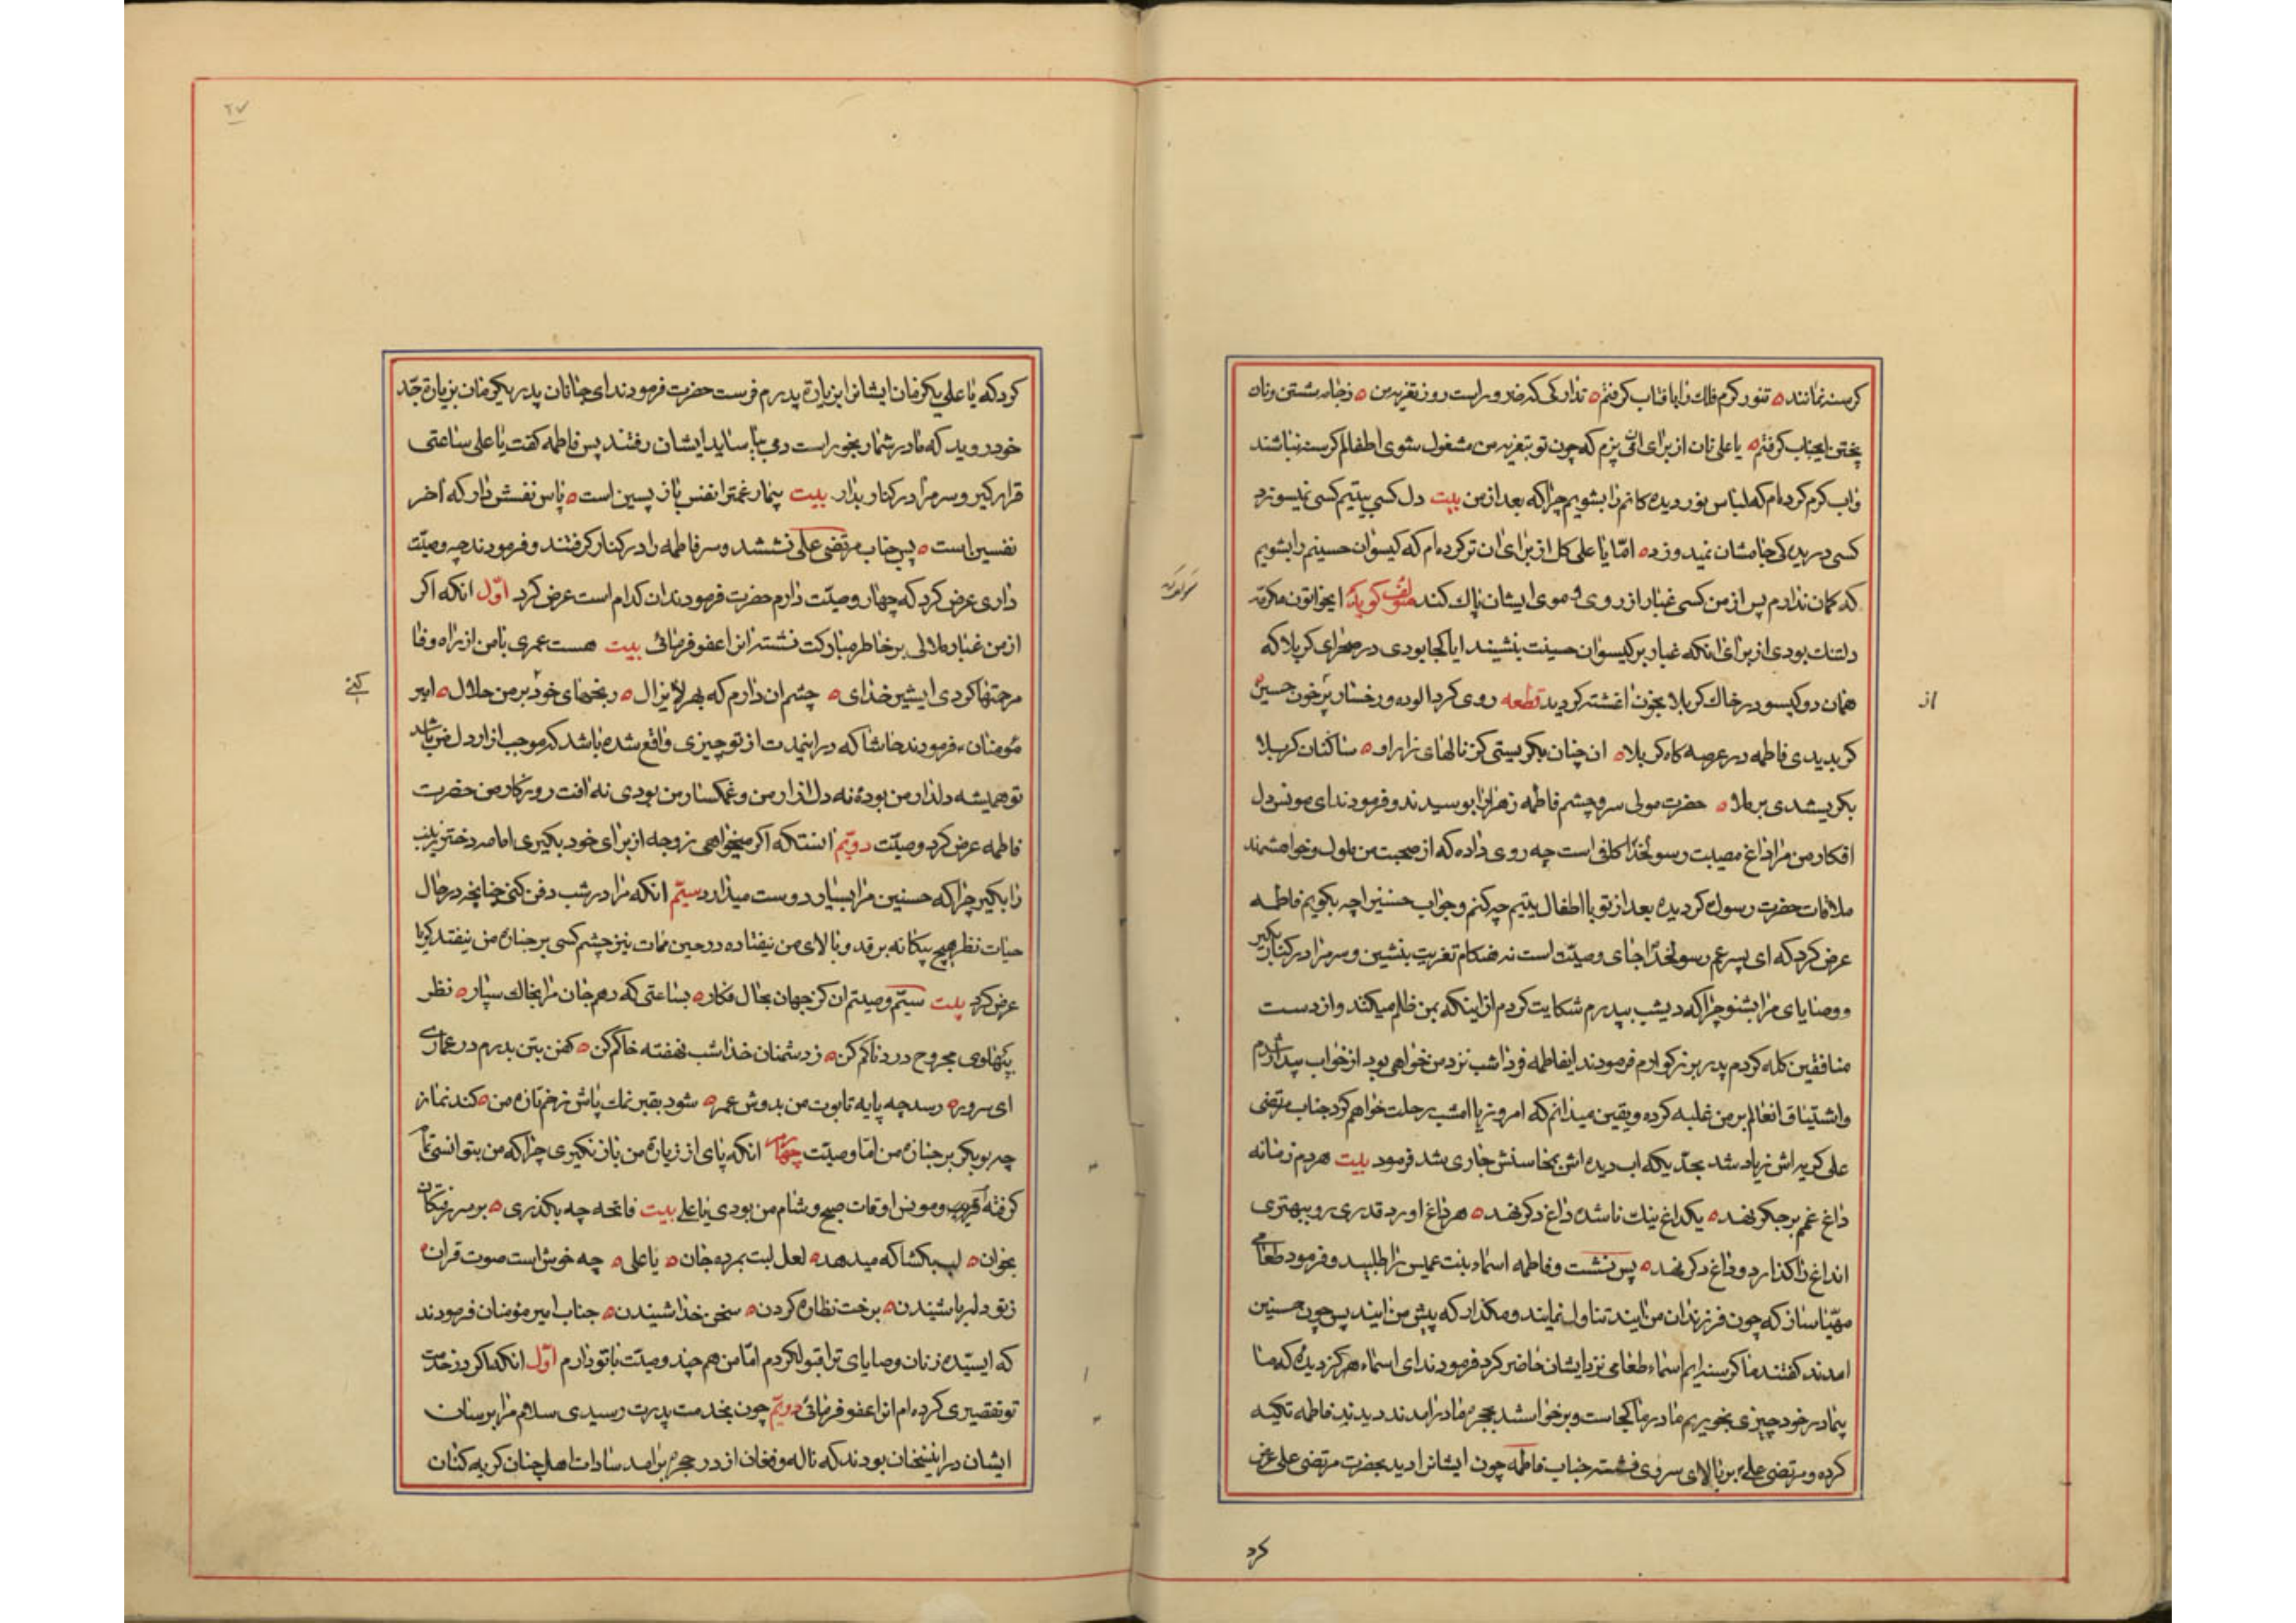 کرسنه نمانند ه تنور کرم فلك را بافتاب کرفتم ه تدارکی که ضرور است روز تعزیه من ه زجامه شستن ونان
پختن ایجناب کرفتم ه یا علی نان از برای ان پزم که چون تو بتعزیه من مشغول شوی اطفالم کرسنه نباشند
واب کرم کرده ام که لباس نور دیده کانم را بشویم چرا که بعد از من بیت دل کسی بیتیم کسی نمیسوزد
کسی دریدکی جامشان نمیدوزد ه امّا یا علی کل از برای ان تر کرده ام که کیسوان حسینم را بشویم
که کمان ندارم پس از من کسی غبار از روی و موی ایشان پاك کند مؤلف کوید ایخواتون مکرمه
دلتنك بودی از برای انکه غبار بر کیسوان حسینت بنشیند ایا کجا بودی در صحرای کربلا که
همان دو کیسو در خاك کربلا بخون اغشته کردید قطعه روی کرد الوده و رخسار پر خون حسین
کر بدیدی فاطمه در عرصه کاه کربلا ه ان چنان بکریستی کز نالهای زار او ه ساکنان کربلا
بکریشدی برملا ه حضرت مولی سر و چشم فاطمه زهرا را بوسیدند و فرمودند ای مونس دل
افکار من مرا داغ مصیبت رسولخدا کافی است چه روی داده که از صحبت من ملول و خواهشمند
ملاقات حضرت رسول کردیده بعد از تو با اطفال یتیم چه کنم و جواب حسنین را چه بکویم فاطمه
عرض کرد که ای پسر عم رسولخدا جای وصیّت است نه هنکام تعزیت بنشین و سر مرا در کنار بکیر
و وصایای مرا بشنو چرا که دیشب بپدرم شکایت کردم از اینکه بمن ظلم میکنند و از دست
منافقین کله کردم پدر بزرکوارم فرمودند ایفاطمه فردا شب نزد من خواهی بود از خواب بیدار شدم
واشتیاق انعالم بر من غلبه کرده و یقین میدانم که امروز یا امشب رحلت خواهم کرد جناب مرتضی
علی کریه اش زیاد شد بحدّیکه اب دیده اش بمحاسنش جاری شد فرمود بیت هردم زمانه
داغ غم بر جکر نهد ه یکداغ نیك ناشده داغ دکر نهد ه هر داغ اورد قدری رو ببهتری
انداغ را کذارد و داغ دکر نهد ه پس نشست و فاطمه اسماء بنت عمیس را طلبید و فرمود طعامی
مهیّا ساز که چون فرزندان من ایند تناول نمایند و مکذار که پیش من ایند پس چون حسنین
امدند کفتند ما کرسنه ایم اسماء طعامی نزد ایشان حاضر کرد فرمودند ای اسماء هرکز دیده که ما
بیمادر خود چیزی بخوریم مادر ما کجاست و برخواستند بحجره مادر امدند دیدند فاطمه تکیه
کرده و مرتضی علی بر بالای سر وی نشسته جناب فاطمه چون ایشانرا دید بحضرت مرتضی علی عرض
از
کرد
۲۷
کرد که یا علی یکزمان ایشانرا بزیارة پدرم فرست حضرت فرمودند ای جانان پدر یکزمان بزیارة جدّ
خود روید که مادر شما رنجور است دمی بیاساید ایشان رفتند پس فاطمه کفت یا علی ساعتی
قرار کیر و سر مرا در کنار بدار بیت بیمار غمترا نفس باز پسین است ه پاس نفسش دار که اخر
نفسین است ه پس جناب مرتضی علی نشستند و سر فاطمه را در کنار کرفتند و فرمودند چه وصیّت
داری عرض کرد که چهار وصیّت دارم حضرت فرمودند ان کدام است عرض کرد اوّل انکه اکر
از من غبار ملالی بر خاطر مبارکت نشسته انرا عفو فرمائی بیت هست عمری با من از راه وفا
مرحمتها کردی ای شیر خدای ه چشم ان دارم که بهر لایزال ه رنجهای خود بر من حلال ه امیر
مؤمنان فرمودند حاشا که در اینمدت از تو چیزی واقع شده باشد که موجب ازار دل من باشد
تو همیشه دلدار من بودهٔ نه دل ازار من و غمکسار من بودی نه افت روزکار من حضرت
فاطمه عرض کرد وصیّت دویّم انستکه اکر میخواهی زوجه از برای خود بکیری امامه دختر زینب
را بکیر چرا که حسنین مرا بسیار دوست میدارد سیّم انکه مرا در شب دفن کنی چنانچه در حال
حیات نظر هیچ بیکانه بر قد و بالای من نیفتاده در حین ممات نیز چشم کسی بر جنازه من نیفتد کویا
عرض کرد بیت سیّم وصیتم ان کز جهان بحال فکار ه بساعتی که دهم جان مرا بخاك سپار ه نظر
بپهلوی مجروح دردناکم کن ه ز دشمنان خدا شب نهفته خاکم کن ه کفن بتن بدرم در عماری
ای سرور ه رسد چه پایه تابوت من بدوش عمر ه شود بقبر نمك پاش زخم تازه من ه کند نماز
چه بوبکر بر جنازه من امّا وصیّت چهارم انکه پای از زیارة من باز نکیری چرا که من بتو انسی تمام
کرفته ام و مونس اوقات صبح و شام من بودی یا علی بیت فاتحه چه بکذری ه بر سر
بخوان ه لب بکشا که میدهد ه لعل لبت بمرده جان ه یا علی ه چه خوش است صوت قران ه
ز تو دلربا شنیدن ه برخت نظاره کردن ه سخن خدا شنیدن ه جناب امیر مؤمنان فرمودند
که ای سیّده زنان وصایای ترا قبول کردم امّا من هم چند وصیّت با تو دارم اوّل انکه اکر در خدمت
تو تقصیری کرده ام انرا عفو فرمائی دویّم چون بخدمت پدرت رسیدی سلام مرا برسان
ایشان در اینسخنان بودند که ناله و فغان از در حجره برامد سادات اهل جنان کریه کنان